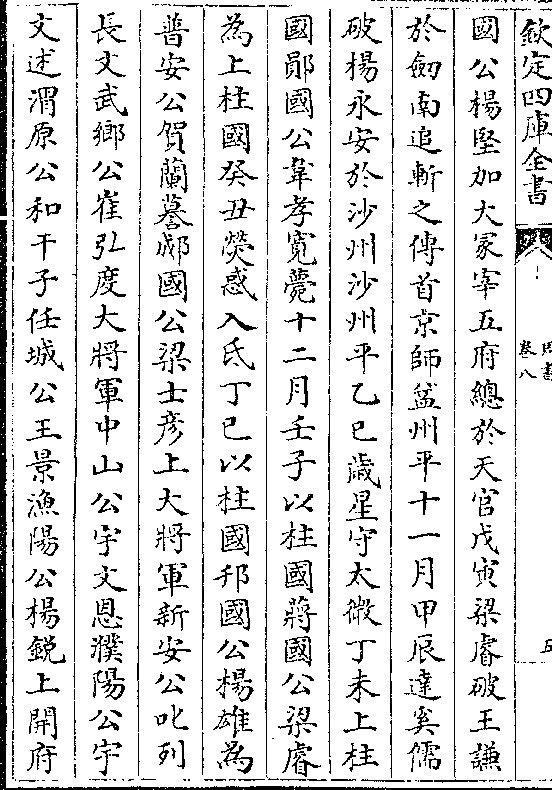 欽定四庫全書
周書
卷八
五
國公楊堅加大冢宰五府總於天官戊寅梁睿破王謙
於劒南追斬之傳首京師益州平十一月甲辰達奚儒
破楊永安於沙州沙州平乙巳歲星守太微丁未上柱
國鄖國公韋孝寛薨十二月壬子以柱國蔣國公梁睿
為上柱國癸丑熒惑入氐丁巳以柱國邗國公楊雄為
普安公賀蘭謩郕國公梁士彦上大將軍新安公叱列
長文武鄉公崔弘度大將軍中山公宇文恩濮陽公宇
文述渭原公和干子任城公王景漁陽公楊鋭上開府